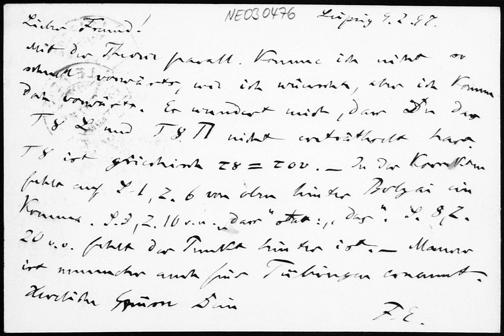 NE030476
Leipzig 9.2.97.
Lieber Freund!
Mit der Theorie parall. Komme ich nicht so
schnell vorwärts, wie ich wünschte, aber ich komme
doch vorwärts. Es wundert mich, dass Du das
und nicht enträthselt hast.
ist griechisch = του. — In der Korrektur
fehlt auf S. 1, Z. 6 von oben hinter Bolyai ein
Komma. S. , Z. 10 v.u. „dass" statt: „das". S. 8, Z.
20 v.o. fehlt der Punkt hinter ist. — Maurer
ist nunmehr auch für Tübingen ernannt.
Herzliche Grüsse Dein
F. E.